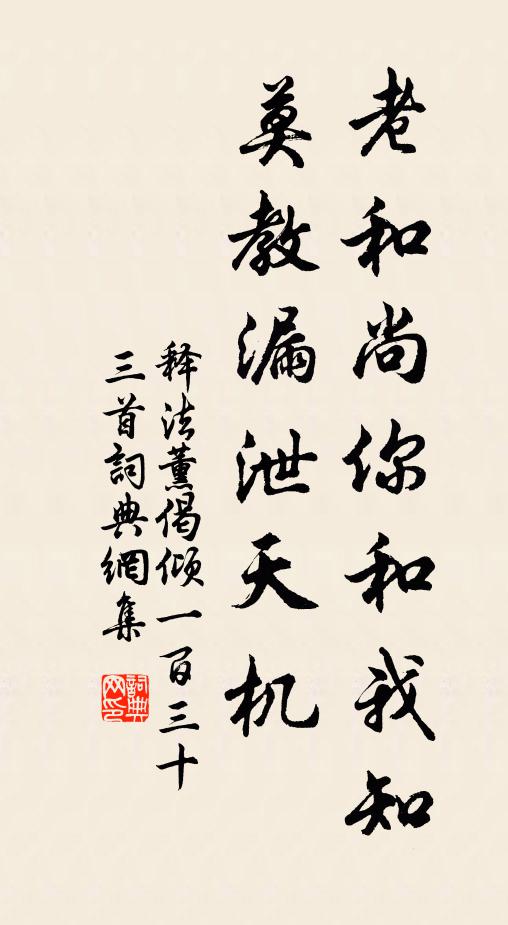 老和尚你和我知
莫教漏泄天机
释法薰偈倾一百三十
三首詞典網集
詞典
网印